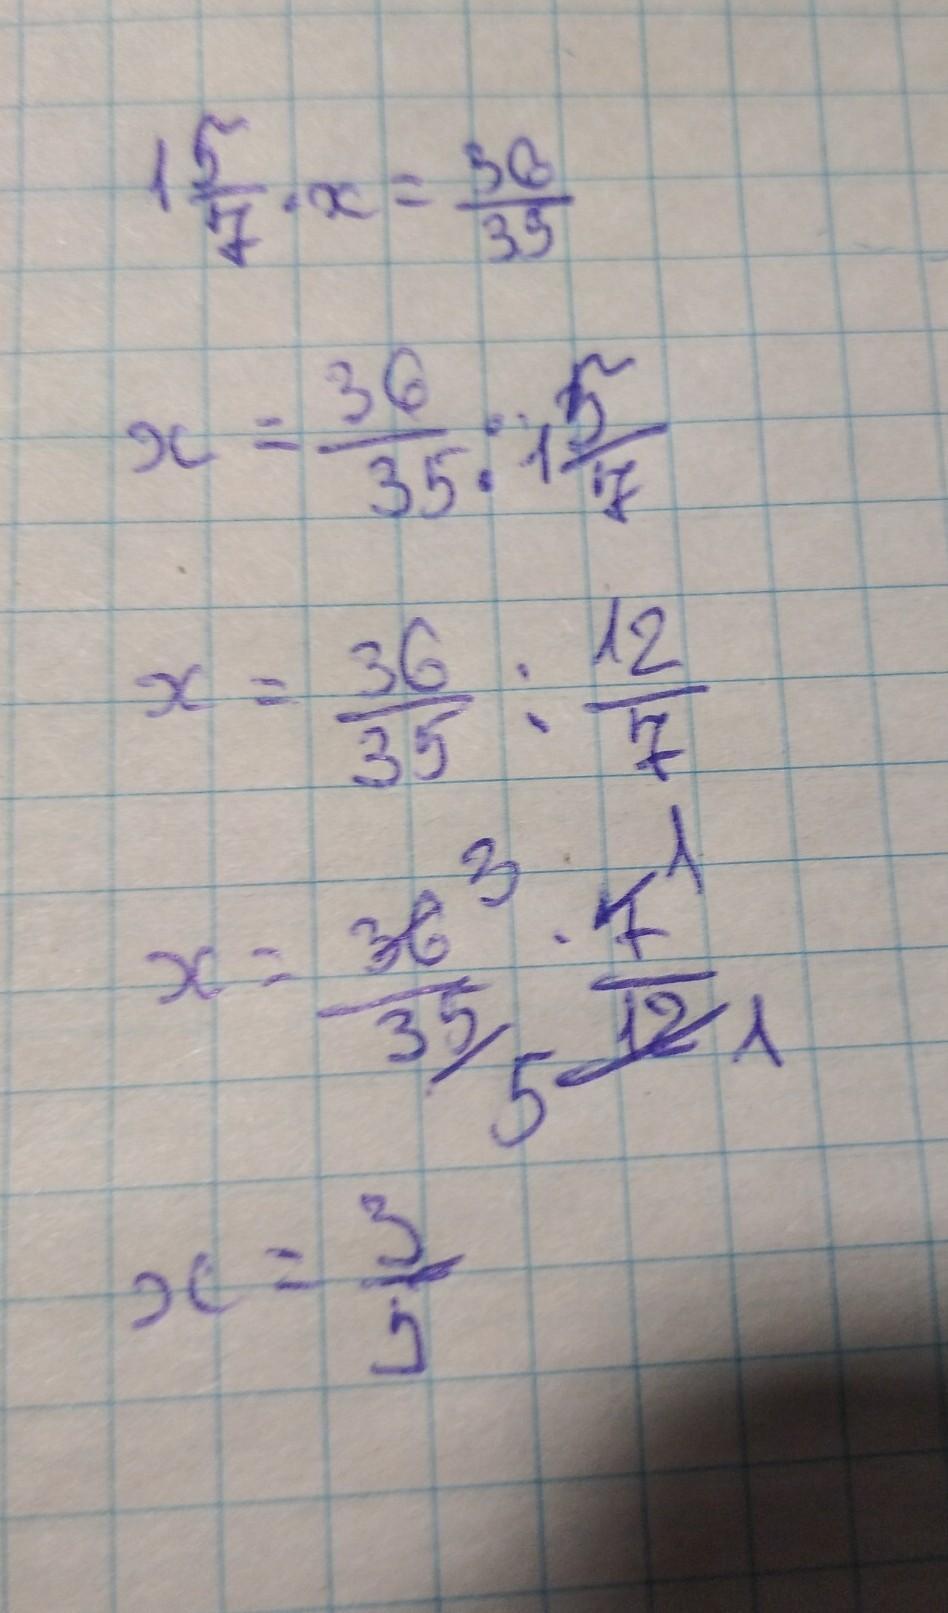 1 5/7 · x = 36/35
x = 36/35 : 1 5/7
x = 36/35 : 12/7
x = 36 3/35 5 · 7 1/12 1
x = 3/5